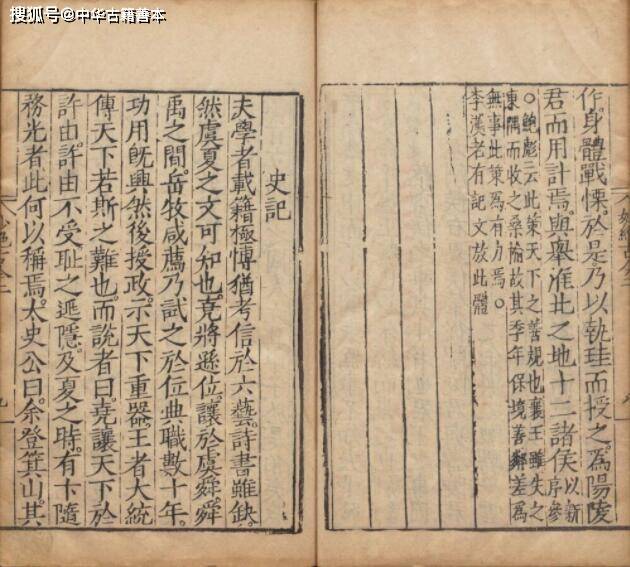 搜狐号@中华古籍善本
作身體戰慄。於是乃以執珪而授之。為陽陵
君而用計焉。與舉淮北之地十二諸侯以新序參
○鮑彪云此策天下之善規也襄王雖失之
東隅而收之桑榆故其季年保境善鄰差為
無事此策為有力焉。
李漢老有記文放此體
史記
夫學者載籍極愽猶考信於六藝。詩書雖缺。
然虞夏之文可知也。堯將遜位。讓於虞舜。舜
禹之間。岳牧咸薦。乃試之於位。典職數十年。
功用旣興。然後授政。示天下重器。王者大統
傳天下若斯之難也。而說者曰。堯讓天下於
許由。許由不受。恥之逃隱。及夏之時。有卞隨
務光者。此何以稱焉。太史公曰。余登箕山。其